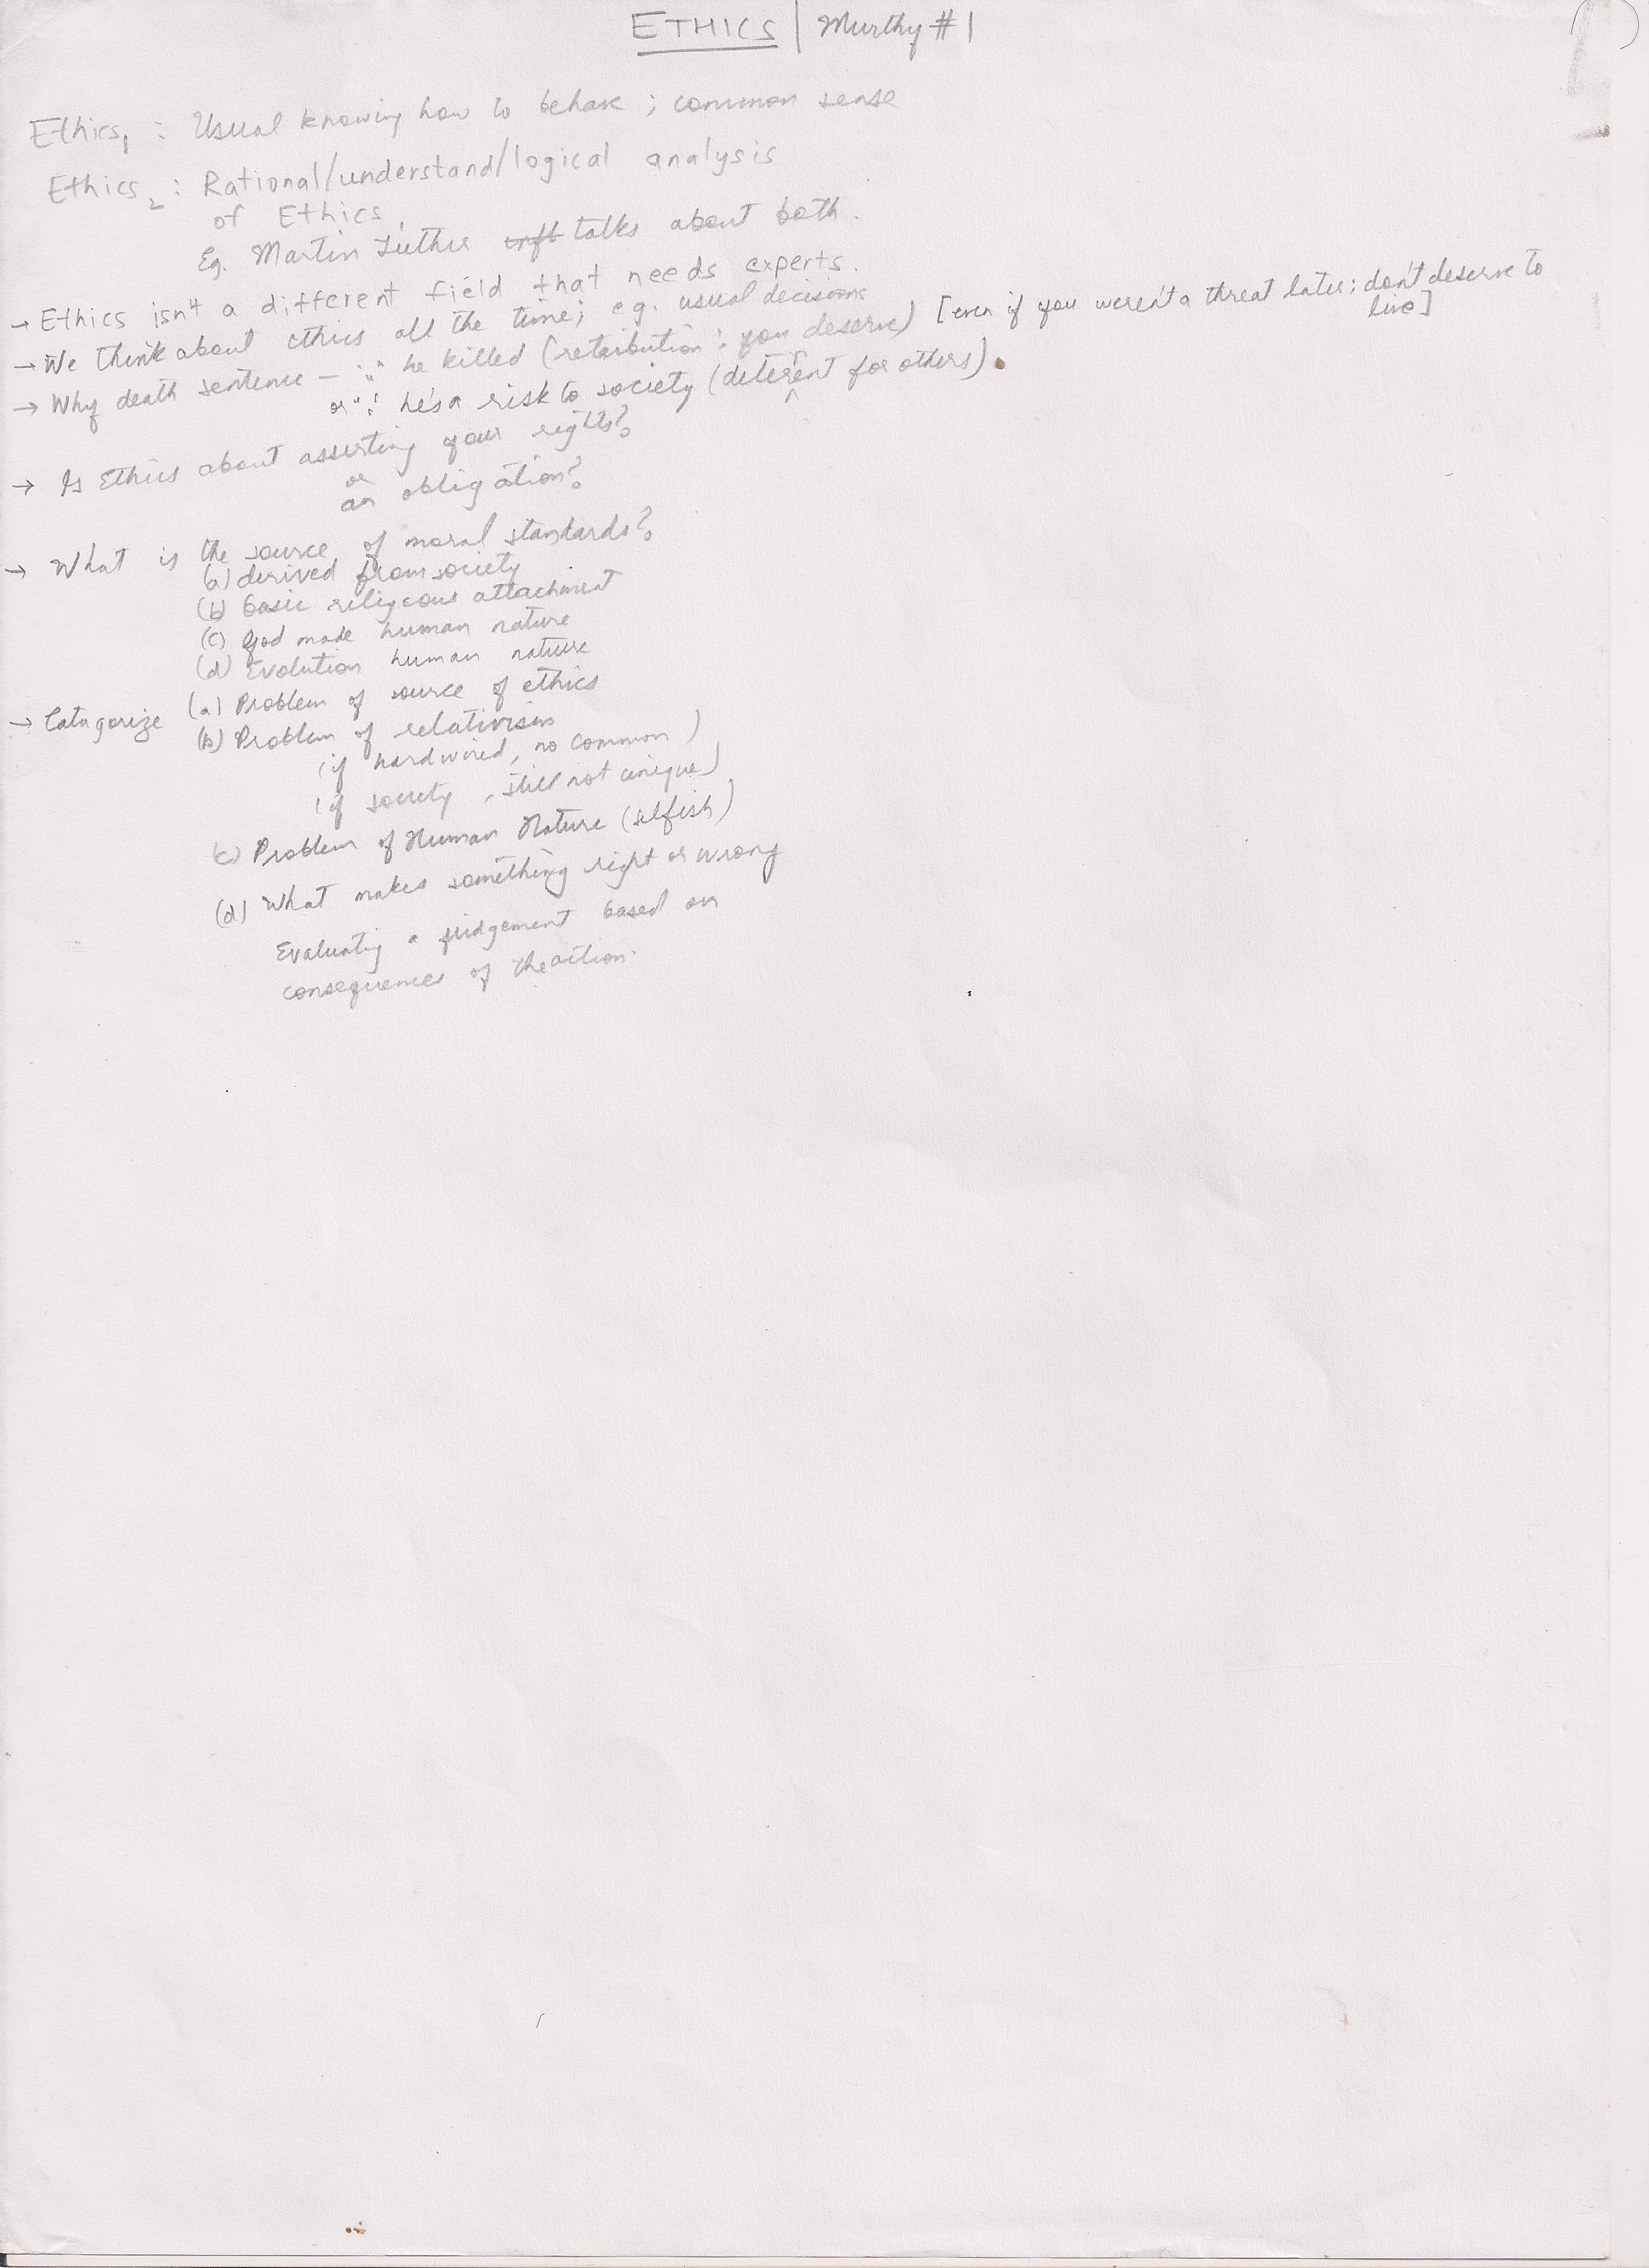 ETHICS | Murthy #1
Ethics₁ : Usual knowing how to behave ; common sense
Ethics₂ : Rational/understand/logical analysis
of Ethics₁
Eg. Martin Luther talks about both.
→ Ethics isn't a different field that needs experts.
→ We think about ethics all the time; eg. usual decisions
→ Why death sentence – "∵" he killed (retribution : you deserve) [even if you weren't a threat later; don't deserve to
live]
or "∵" he's a risk to society (deterrent for others).
→ Is Ethics about asserting your rights?
or
an obligation?
→ What is the source of moral standards?
(a) derived from society
(b) basic religeous attachment
(c) God made human nature
(d) Evolution human nature
→ Catagorize (a) Problem of source of ethics
(b) Problem of relativism
(if hardwired, no common)
(if society, still not unique)
(c) Problem of Human Nature (selfish)
(d) What makes something right or wrong
Evaluating a judgement based on
consequences of the action.